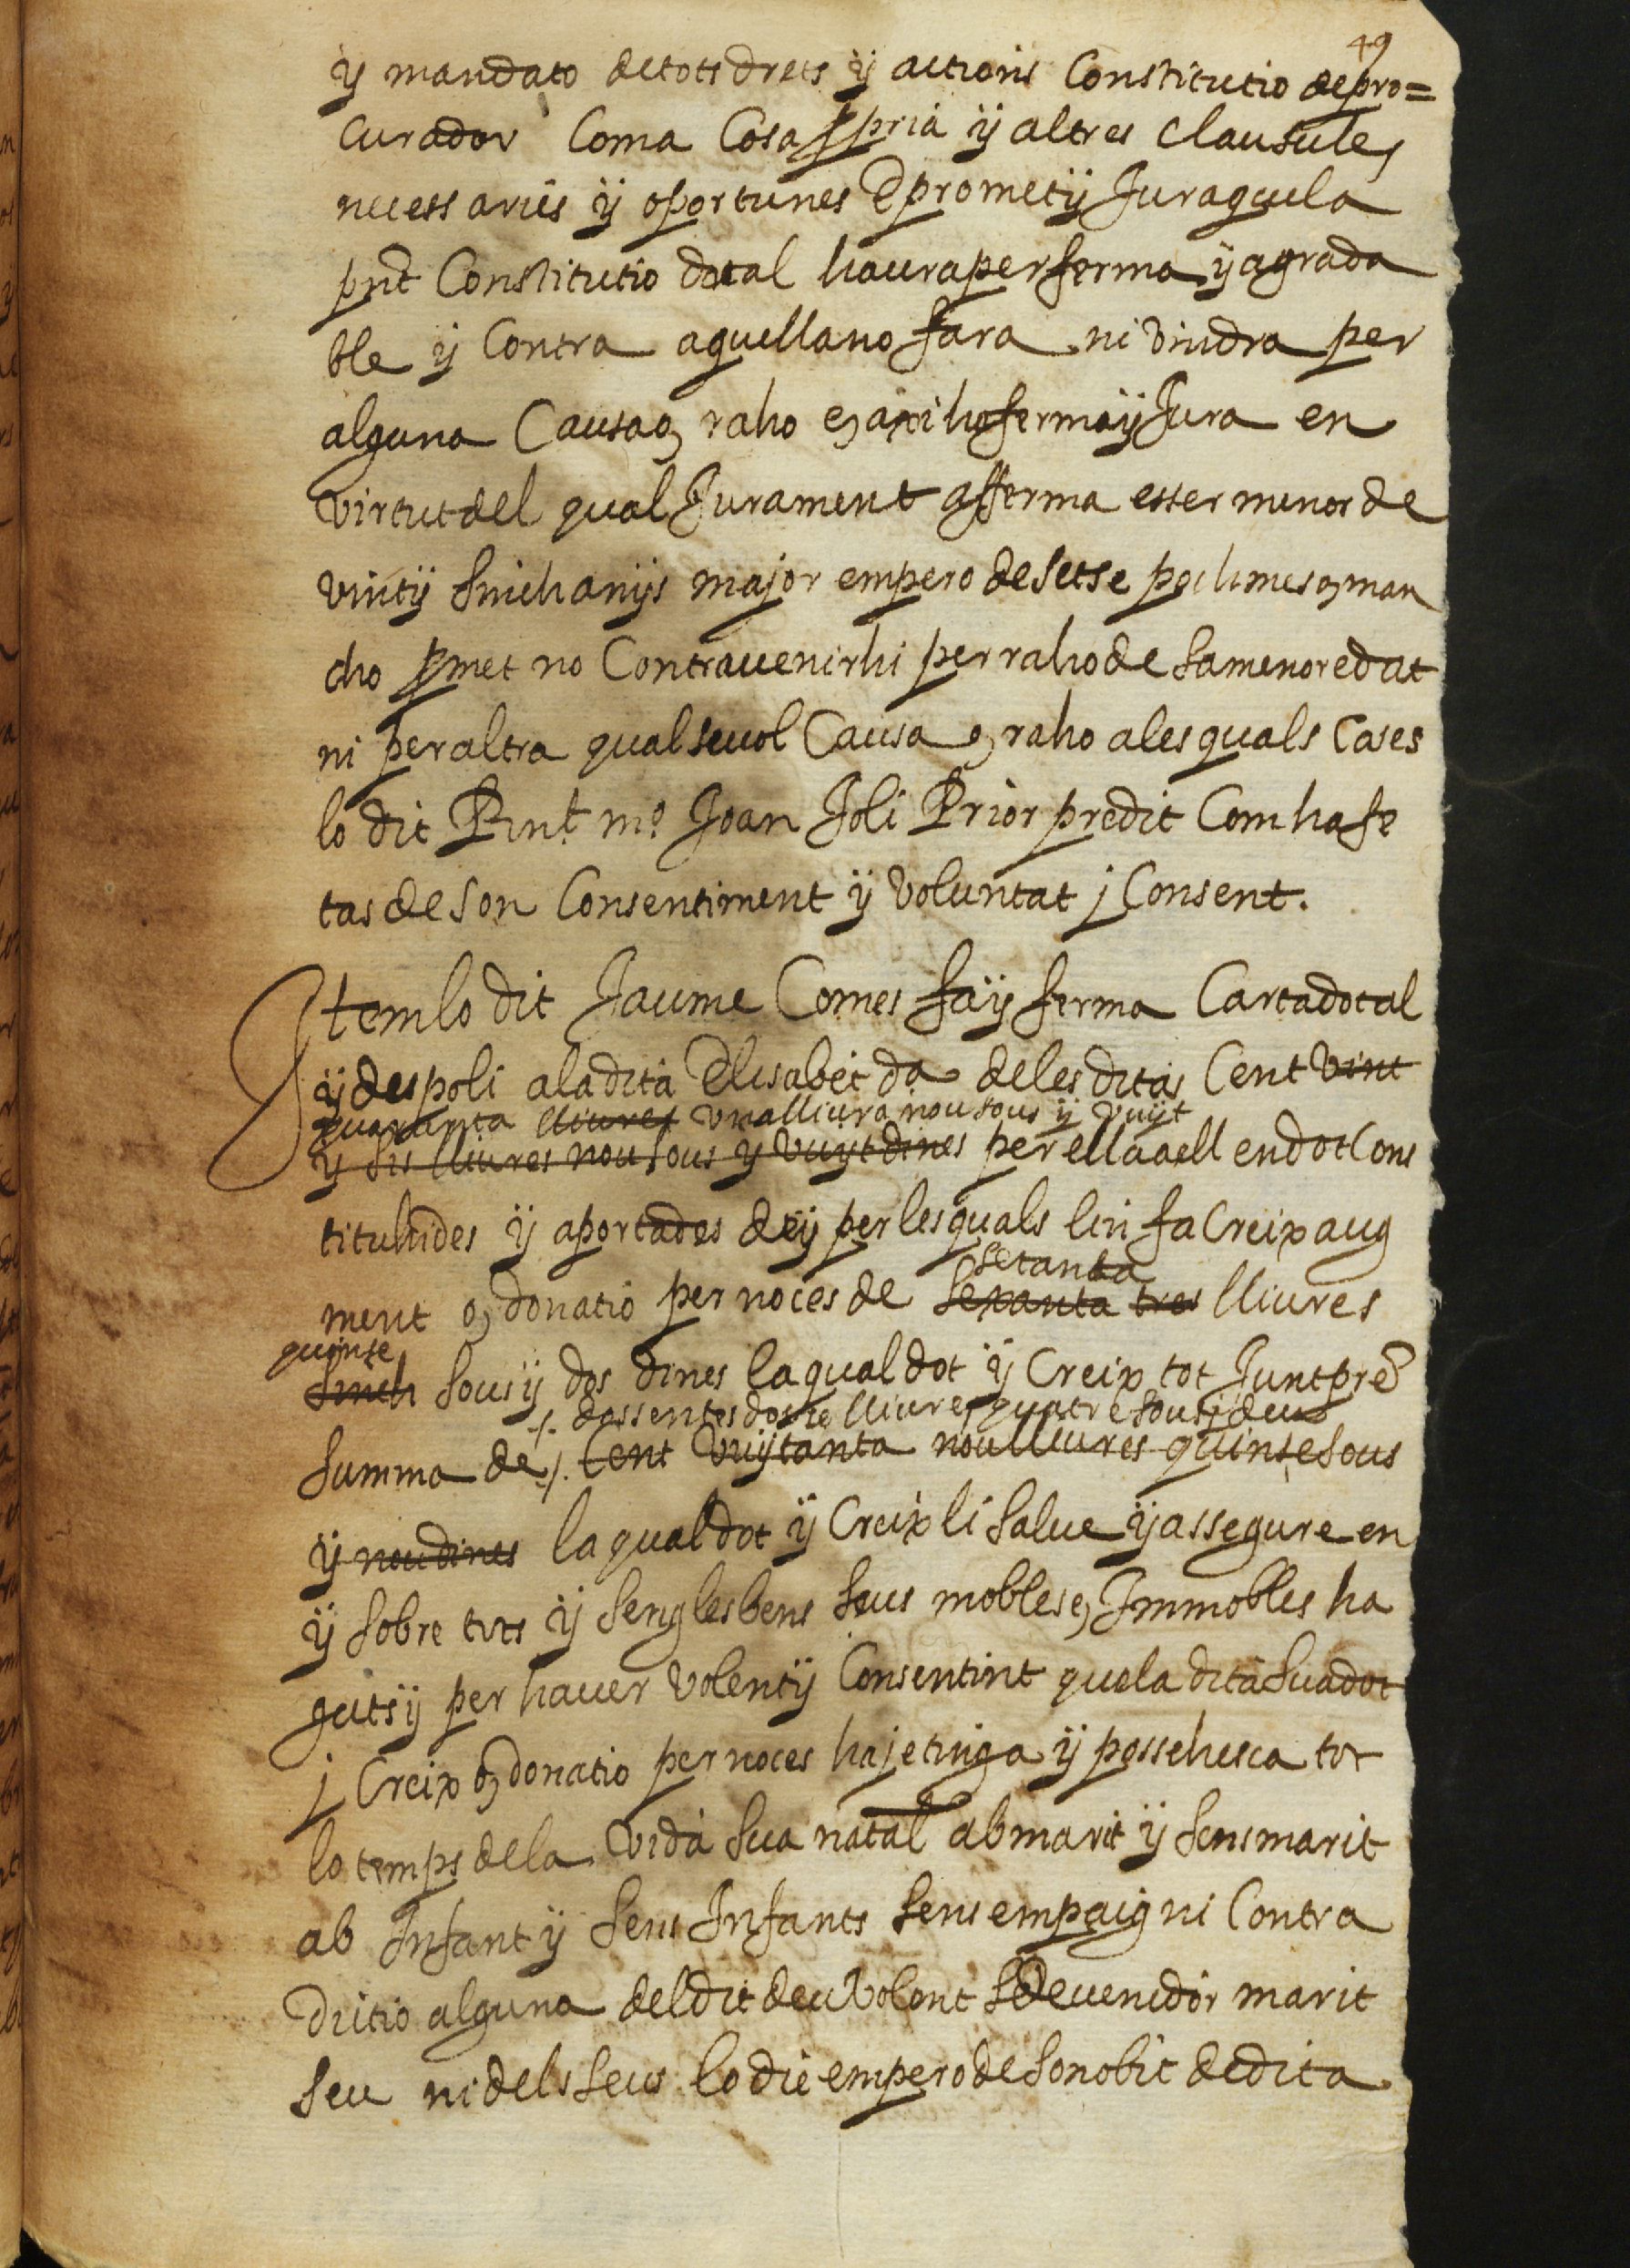 49
y mandato de tots drets y actions Constitutio de pro=
curador Coma Cosa ppria y altres clausules
necessaries y oportunes E promet y Jura que la
pnt Constitutio dotal haura per ferma y agrada
ble y Contra aquella no fara ni vindra per
alguna Causa o, raho e, axi ho ferma y Jura en
virtut del qual Jurament afferma esser menor de
vint y sinch anys major empero de setse poch mes o, man
cho pmet no Contravenirhi per raho de sa menor edat
ni per altra qualsevol Causa o, raho a les quals Cases
lo dit Rnt mo Joan Joli Prior predit Com ha fe
tas de son Consentiment y voluntat j Consent.
Item lo dit Jaume Comes fa y ferma Carta dotal
y despoli a la dita Elisabet da de les ditas Cent vint
quaranta lliures una lliura nou sous y vuyt
y sis lliures nou sous y vuyt dines per ella a ell en dot Cons
tituhides y aportades de y per les quals li n fa Creix aug
setanta
ment o, donatio per noces de sexanta tres lliures
quinse
sinch sous y dos dines la qual dot y Creix tot Junt pre
./. dossentes dotse lliures quatre sous j deu
summa de ./. Cent vuytanta nou lliures quinse sous
y nou dines la qual dot y Creix li salve y assegure en
y sobre tots y sengles bens seus mobles e, Immobles ha
guts y per haver volent y Consentint que la dita sua dot
j Creix o, donatio per noces haje tinga y possehesca tot
lo temps de la vida sua natal ab marit y sens marit
ab Infant y sens Infants sens empaig ni Contra
dictio alguna del dit deu volent sdevenidor marit
seu ni dels seus lo die empero de son obit de dita